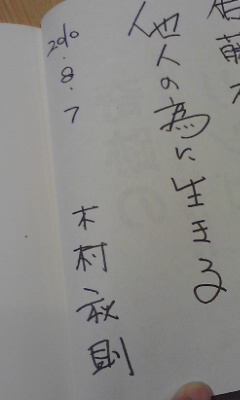 他人の為に生きる
2010.8.7
木村秋則